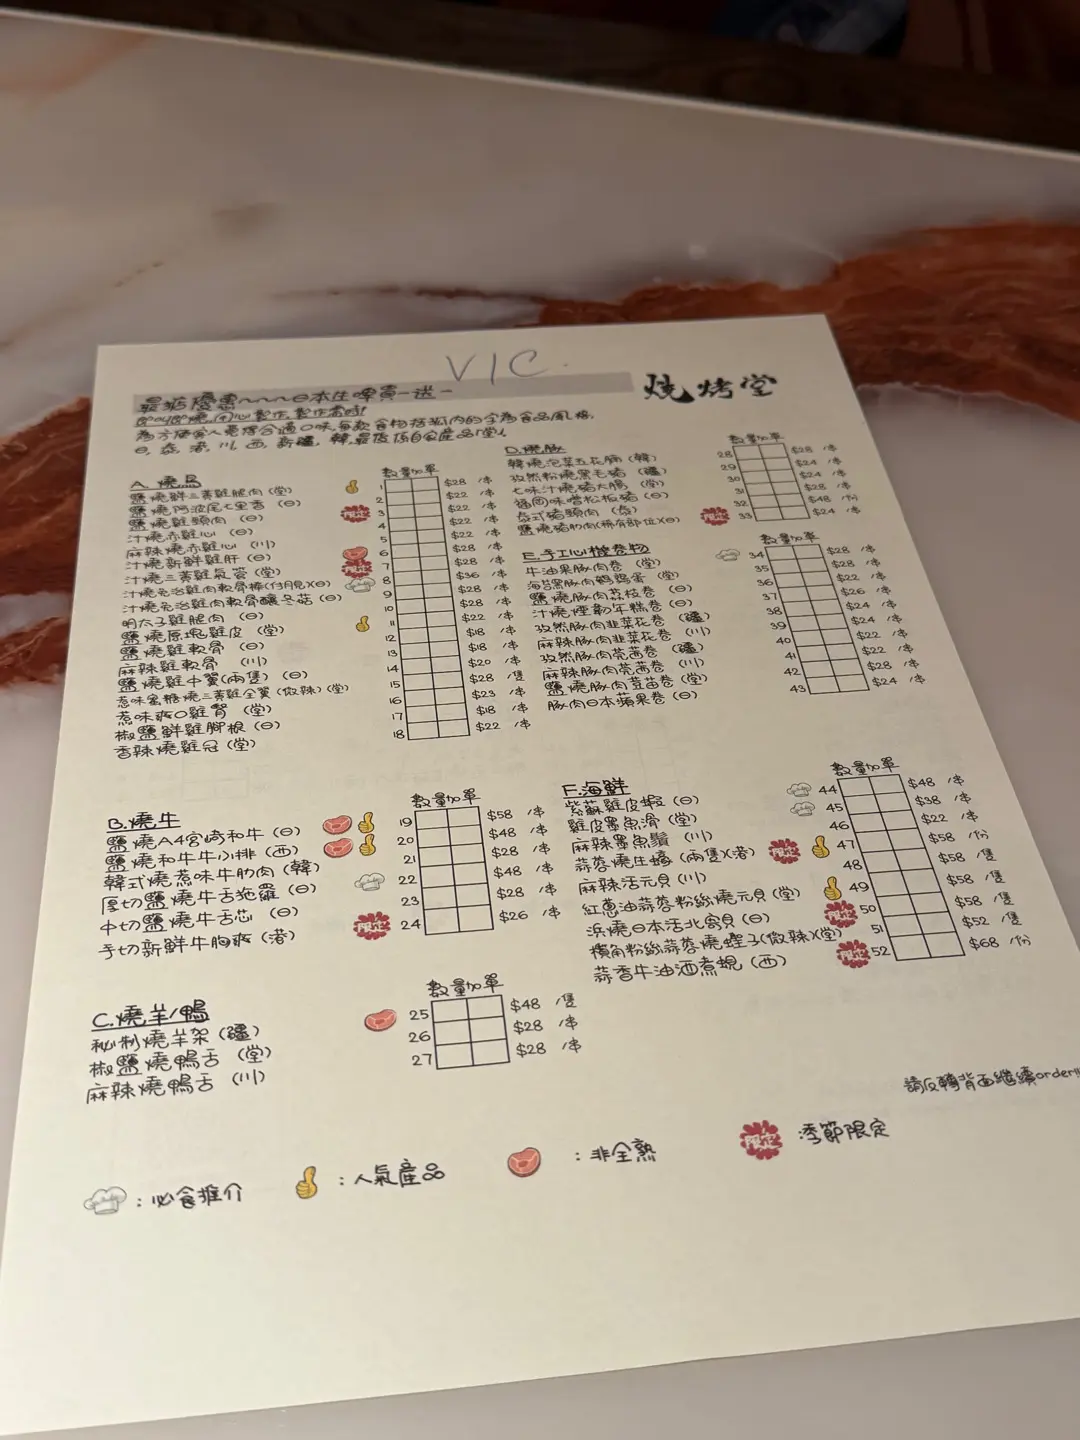 VIC.
最新優惠~~~日本生啤買一送一
燒烤堂
為方便客人選擇合適口味,每款食物括弧內的字為食品風格,
日, 泰, 港, 川, 西, 新疆, 韓,最後係自家産品「堂」
A. 燒鳥
數量 加單
鹽燒鮮三黃雞腿肉 (堂) 1 $28 /串
鹽燒阿波尾七里香 (日) 2 $22 /串
鹽燒雞頸肉 (日) 限定 3 $22 /串
汁燒赤雞心 (日) 4 $22 /串
麻辣燒赤雞心 (川) 5 $22 /串
汁燒新鮮雞肝 (日) 6 $28 /串
汁燒三黃雞氣管 (堂) 限定 7 $28 /串
汁燒免治雞肉軟骨棒(付月見)(日) 8 $36 /串
汁燒免治雞肉軟骨釀冬菇 (日) 9 $28 /串
明太子雞腿肉 (日) 10 $28 /串
鹽燒原塊雞皮 (堂) 11 $22 /串
鹽燒雞軟骨 (日) 12 $18 /串
麻辣雞軟骨 (川) 13 $18 /串
鹽燒雞中翼(兩隻) (日) 14 $20 /串
惹味蜜糖燒三黃雞全翼(微辣) (堂) 15 $28 /隻
惹味爽口雞腎 (堂) 16 $23 /串
椒鹽鮮雞腳根 (日) 17 $18 /串
香辣燒雞冠 (堂) 18 $22 /串
B. 燒牛
數量 加單
鹽燒A4宮崎和牛 (日) 19 $58 /串
鹽燒和牛牛小排 (西) 20 $48 /串
韓式燒惹味牛肋肉 (韓) 21 $28 /串
厚切鹽燒牛舌拖羅 (日) 22 $48 /串
中切鹽燒牛舌芯 (日) 23 $28 /串
手切新鮮牛胸爽 (港) 限定 24 $26 /串
C. 燒羊/鴨
數量 加單
秘制燒羊架 (疆) 25 $48 /隻
椒鹽燒鴨舌 (堂) 26 $28 /串
麻辣燒鴨舌 (川) 27 $28 /串
D. 燒豚
數量 加單
韓燒泡菜五花腩 (韓) 28 $28 /串
孜然粉燒黑毛豬 (疆) 29 $24 /串
七味汁燒豬大腸 (堂) 30 $24 /串
福岡味噌松板豬 (日) 31 $28 /串
泰式豬頸肉 (泰) 32 $48 /份
鹽燒豬肋肉(稀有部位)(日) 限定 33 $24 /串
E. 手工心機卷物
數量 加單
牛油果豚肉卷 (堂) 34 $28 /串
海苔黑豚肉鵪鶉蛋 (堂) 35 $28 /串
鹽燒豚肉荔枝卷 (日) 36 $22 /串
汁燒煙韌年糕卷 (日) 37 $26 /串
孜然豚肉韭菜花卷 (疆) 38 $24 /串
麻辣豚肉韭菜花卷 (川) 39 $24 /串
孜然豚肉莞茜卷 (疆) 40 $22 /串
麻辣豚肉莞茜卷 (川) 41 $22 /串
鹽燒豚肉荳苗卷 (堂) 42 $28 /串
豚肉日本蘋果卷 (日) 43 $24 /串
F. 海鮮
數量 加單
紫蘇雞皮蝦 (日) 44 $48 /串
雞皮墨魚滑 (堂) 45 $38 /串
麻辣墨魚鬚 (川) 46 $22 /串
蒜蓉燒生蠔 (兩隻)(港) 限定 47 $58 /份
麻辣活元貝 (川) 48 $58 /隻
紅蔥油蒜蓉粉絲燒元貝 (堂) 49 $58 /隻
浜燒日本活北寄貝 (日) 限定 50 $58 /隻
欖角粉絲蒜蓉燒蟶子(微辣)(堂) 51 $52 /隻
蒜香牛油酒煮蜆 (西) 限定 52 $68 /份
請反轉背面繼續order!!
: 必食推介
: 人氣産品
: 非全熟
限定 季節限定